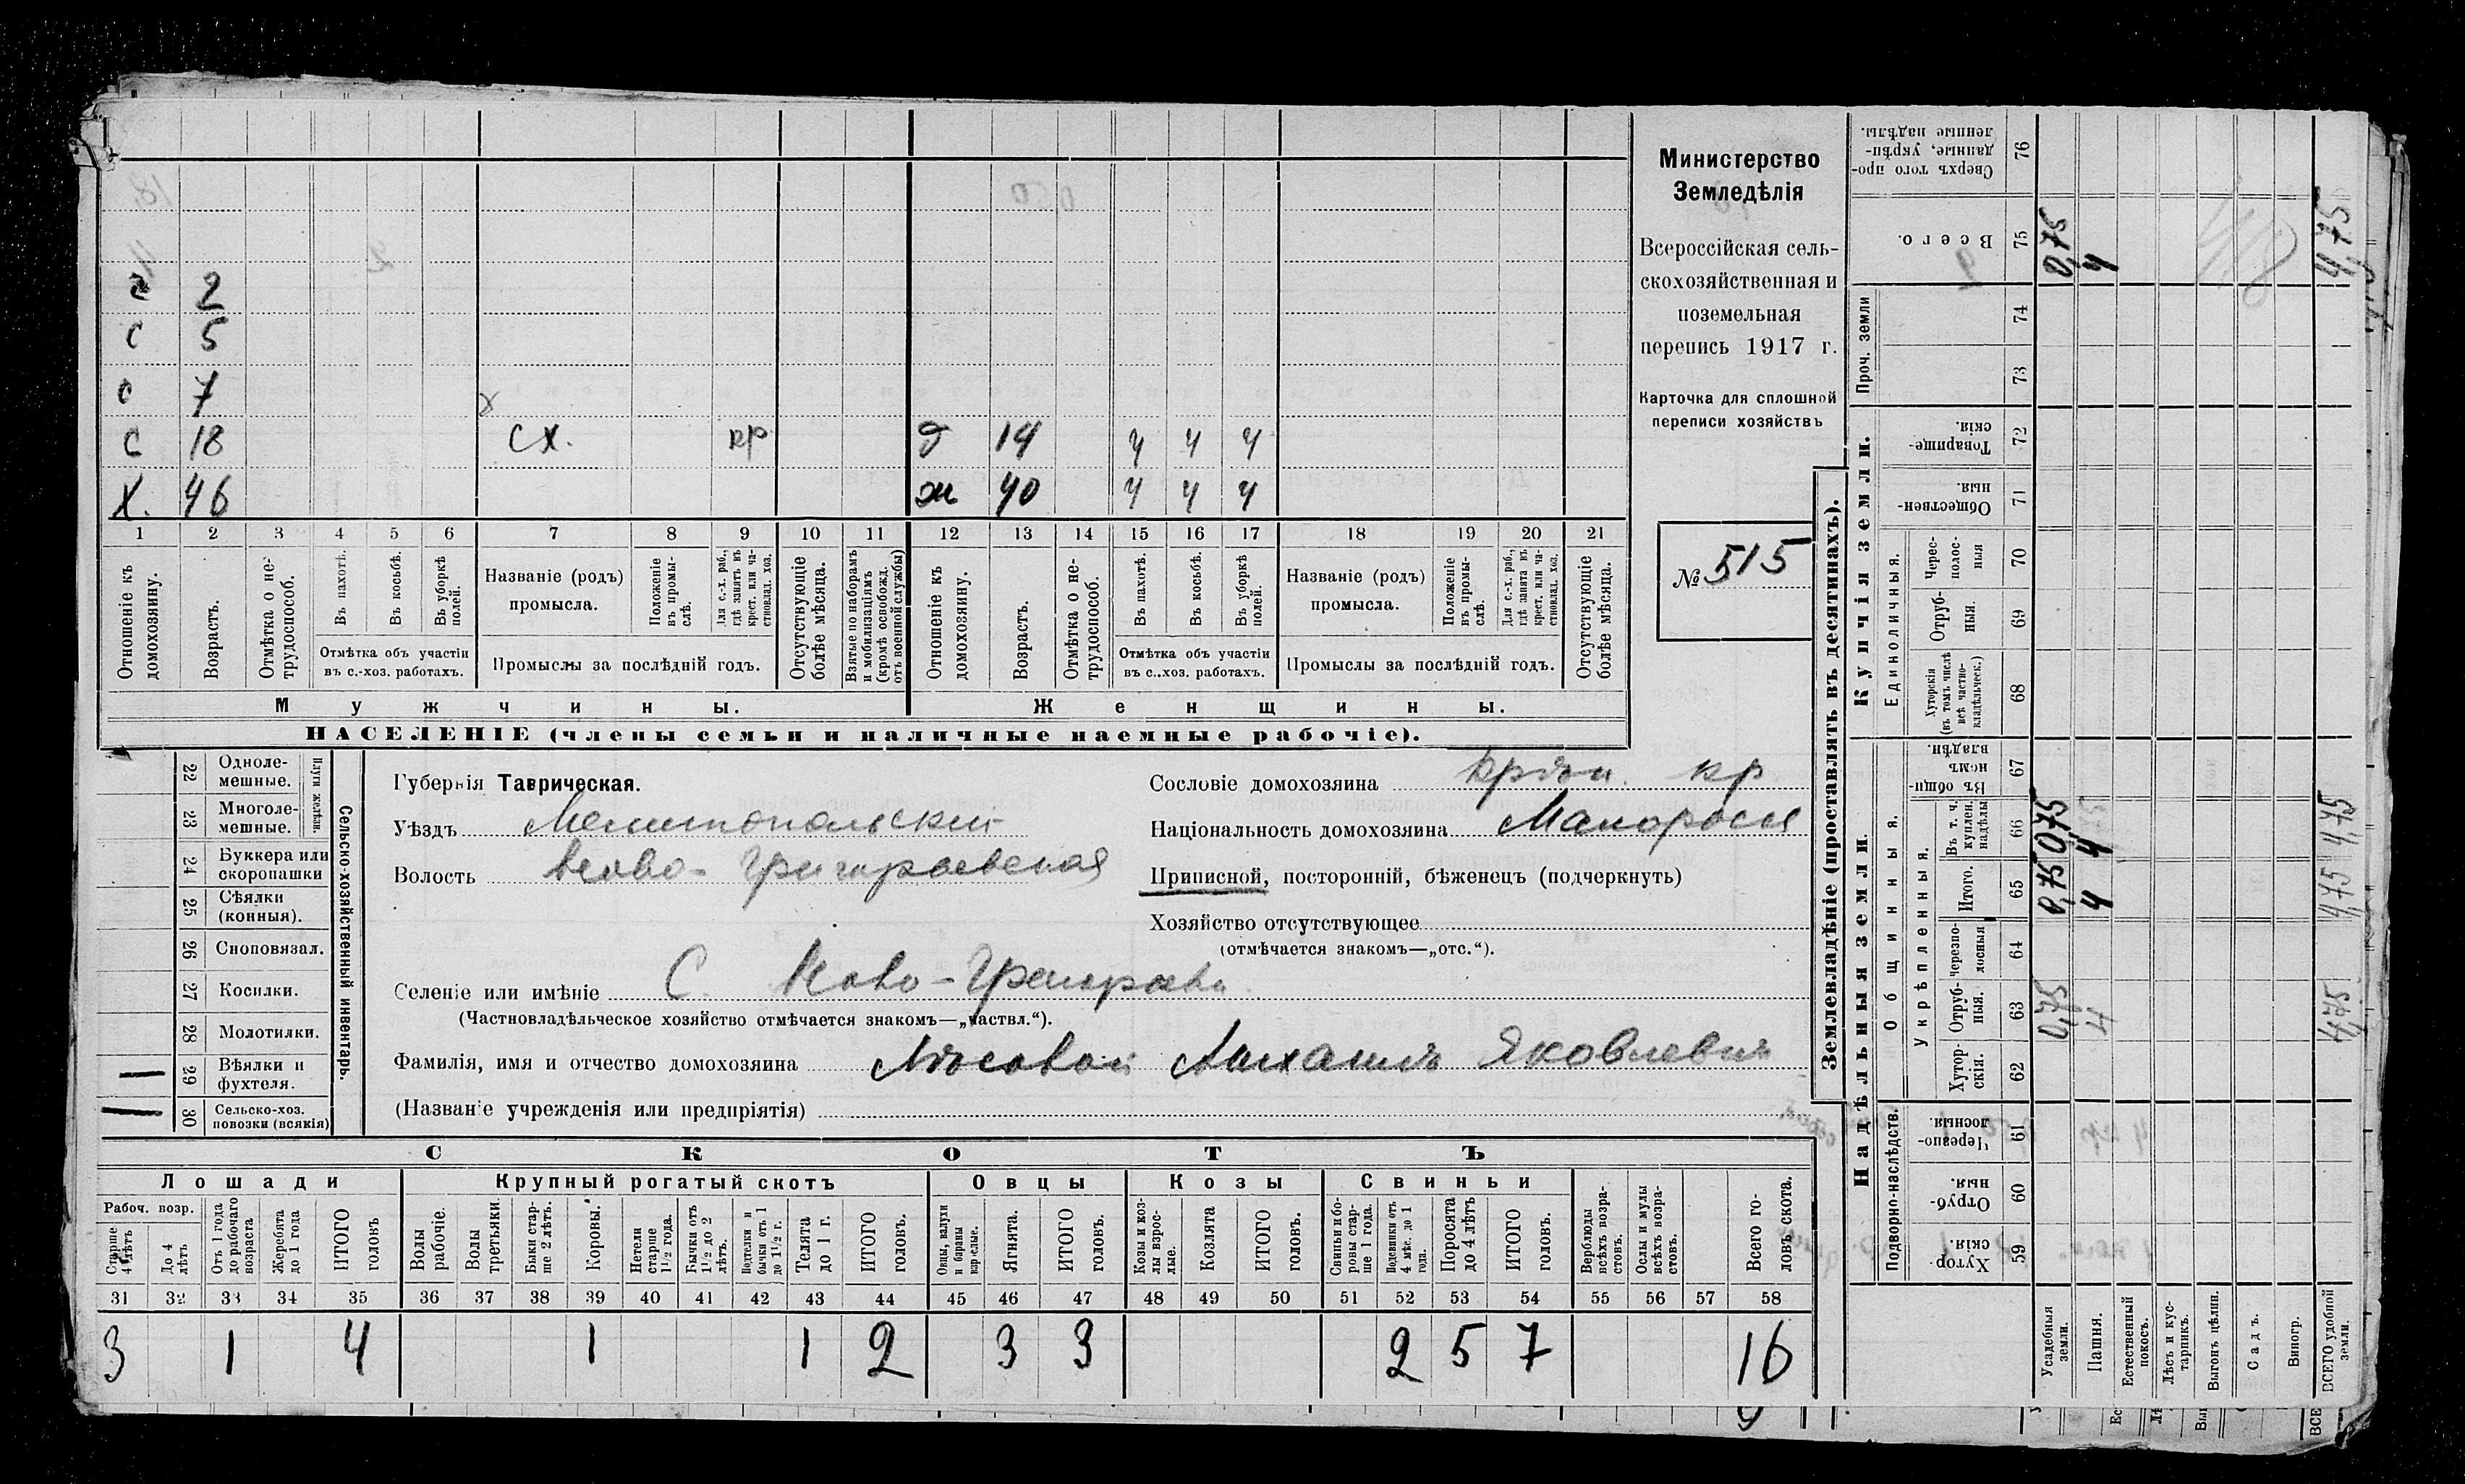 2 2
с 5
с 7
с 18 сх. кр д 14 ч ч ч
х. 46 ж 40 ч ч ч
1 2 3 4 5 6 7 8 9 10 11 12 13 14 15 16 17 18 19 20 21
Отношеніе къ домохозяину.
Возрастъ.
Отмѣтка о не-трудоспособ.
Въ пахотѣ.
Въ косьбѣ.
Въ уборкѣ полей.
Отмѣтка объ участіи
въ с.-хоз. работахъ.
Названіе (родъ)
промысла.
Положеніе въ промы-слѣ.
Для с.-х. раб., гдѣ занятъ въ крест. или ча-стновлад. хоз.
Промыслы за послѣдній годъ.
Отсутствующіе болѣе мѣсяца.
Взятые по наборамъ и мобилизаціямъ (кромѣ освобожд. отъ военной службы)
Отношеніе къ домохозяину.
Возрастъ.
Отмѣтка о не-трудоспособ.
Въ пахотѣ.
Въ косьбѣ.
Въ уборкѣ полей.
Отмѣтка объ участіи
въ с.-хоз. работахъ.
Названіе (родъ)
промысла.
Положеніе въ промы-слѣ.
Для с.-х. раб., гдѣ занята въ крест. или ча-стновлад. хоз.
Промыслы за послѣдній годъ.
Отсутствующіе болѣе мѣсяца.
Мужчины. Женщины.
НАСЕЛЕНІЕ (члены семьи и наличные наемные рабочіе).
Министерство
Земледѣлія
Всероссійская сель-
скохозяйственная и
поземельная
перепись 1917 г.
Карточка для сплошной
переписи хозяйствъ
№ 515
22 Одноле-мешные.
23 Многоле-мешные.
Плуги желѣзн.
24 Буккера или скоропашки
25 Сѣялки (конныя).
26 Сноповязал.
27 Косилки.
28 Молотилки.
29 Вѣялки и фухтеля.
30 Сельско-хоз. повозки (всякія)
Сельско-хозяйственный инвентарь.
Губернія Таврическая.
Уѣздъ Мелитопольскій
Волость Ново-Григорьевская
Сословіе домохозяина кр
Національность домохозяина Малороссъ
Приписной, посторонній, бѣженецъ (подчеркнуть)
Хозяйство отсутствующее
(отмѣчается знакомъ—„отс.“).
Селеніе или имѣніе С. Ново-Григорьевка
(Частновладѣльческое хозяйство отмѣчается знакомъ—„частвл.“).
Фамилія, имя и отчество домохозяина Лѣсовой Михаилъ Яковлевич
(Названіе учрежденія или предпріятія)
СКОТЪ
Лошади Крупный рогатый скотъ Овцы Козы Свиньи
Рабоч. возр.
Старше 4 лѣтъ
До 4 лѣтъ
Отъ 1 года до рабочаго возраста
Жеребята до 1 года
ИТОГО головъ
Волы рабочіе.
Волы третьяки.
Быки стар-ше 2 лѣтъ.
Коровы.
Нетели старше 1½ года.
Бычки отъ 1½ до 2 лѣтъ.
Подтелки и бычки отъ 1 до 1½ г.
Телята до 1 г.
ИТОГО головъ.
Овцы, валухи и бараны взрослые.
Ягнята.
ИТОГО головъ.
Козы и коз-лы взрос-лые.
Козлята
ИТОГО головъ.
Свиньи и бо-ровы стар-ше 1 года.
Подсвинки отъ 4 мѣс. до 1 года.
Поросята до 4 лѣтъ
ИТОГО головъ.
Верблюды всѣхъ возра-стовъ.
Ослы и мулы всѣхъ возра-стовъ.
Всего го-ловъ скота.
31 32 33 34 35 36 37 38 39 40 41 42 43 44 45 46 47 48 49 50 51 52 53 54 55 56 57 58
3 1 4 1 1 2 3 3 2 5 7 16
Землевладѣніе (проставлять въ десятинахъ).
Надѣльныя земли.
Купчія земли.
Проч. земли
Подворно-наслѣдств.
Общинныя.
Укрѣпленныя.
Единоличныя.
Хутор-скія. 59
Отруб-ныя. 60
Черезпо-лосныя. 61
Хутор-скія. 62
Отруб-ныя. 63
Черезпо-лосныя 64
Итого. 65
Въ т. ч. куплен. надѣлы 66
Въ общин-номъ владѣн. 67
Хуторскія (въ томъ числѣ всѣ частно-владѣльческ.) 68
Отруб-ныя. 69
Черес-полос-ныя 70
Обществен-ныя. 71
Товарище-скія. 72
73
74
Всего. 75
Сверхъ того про-данные, укрѣп-ленные надѣлы. 76
Усадебныя земли. 0,75 0,75 0,75 0,75
Пашня. 4 4 4 4
Естественный покосъ.
Лѣсъ и кус-тарникъ.
Выгонъ цѣлин.
Садъ.
Виногр.
ВСЕГО удобной земли. 4,75 4,75 4,75 4,75